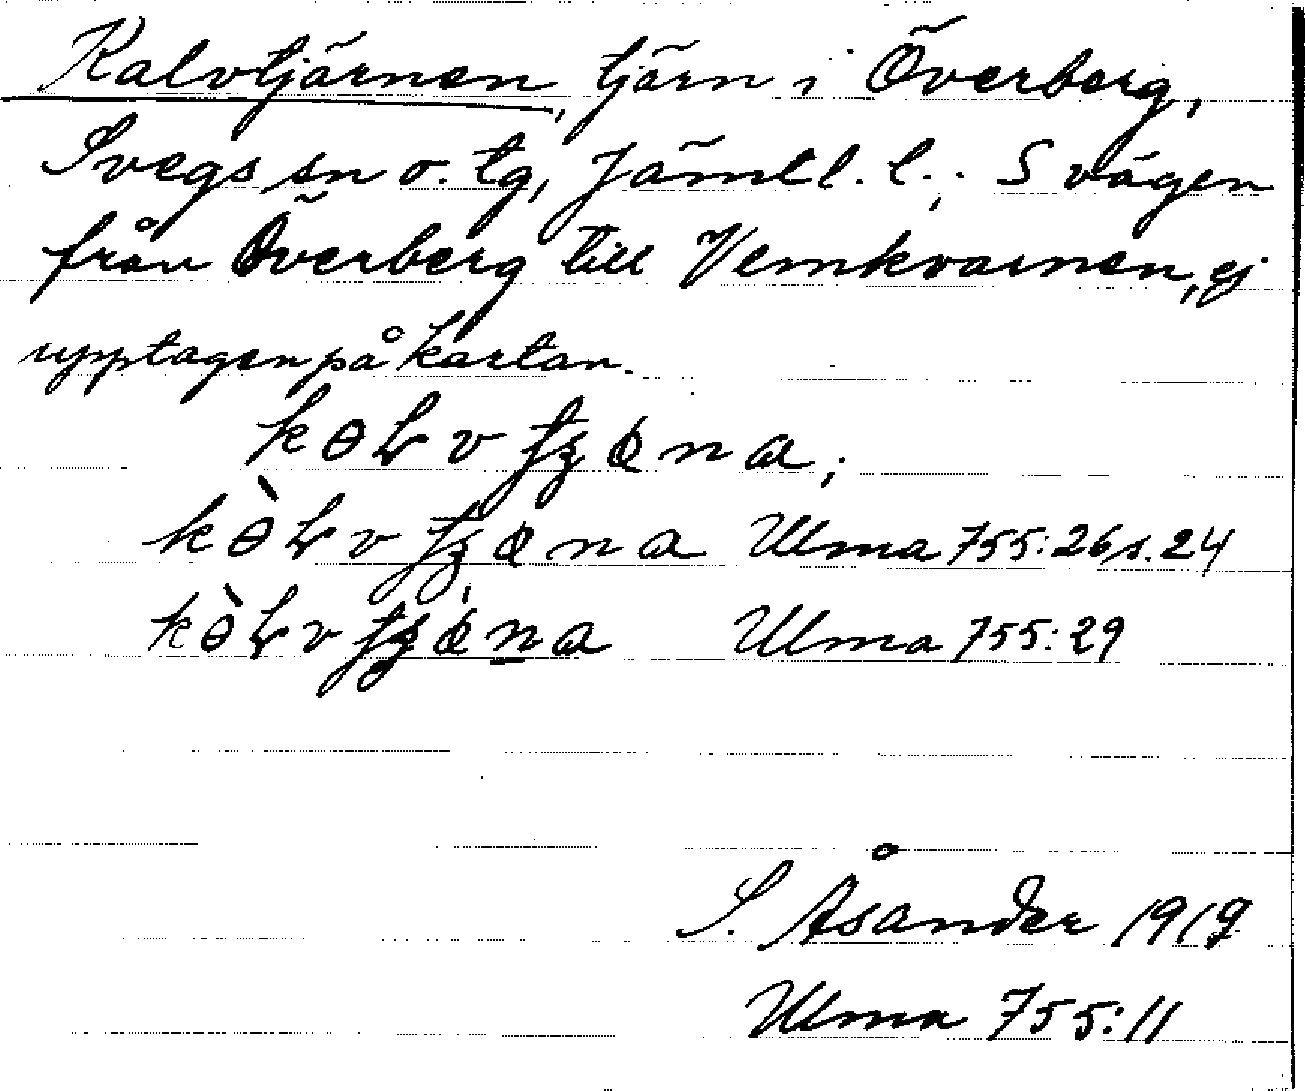 Kalvtjärnen, tjärn i Överberg,
Svegs sn o. tg, Jämtl. l.; S vägen
från Överberg till Vemkvarnen, ej
upptagen på kartan.
Ulma 755:26 s. 24
Ulma 755:29
S. Åsander 1919
Ulma 755:11